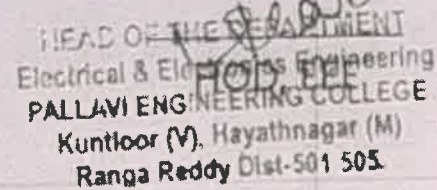 HEAD OF THE DEPARTMENT
Electrical & Electronics Engineering
HOD, EEE
PALLAVI ENGINEERING COLLEGE
Kuntloor (V), Hayathnagar (M)
Ranga Reddy Dist-501 505.